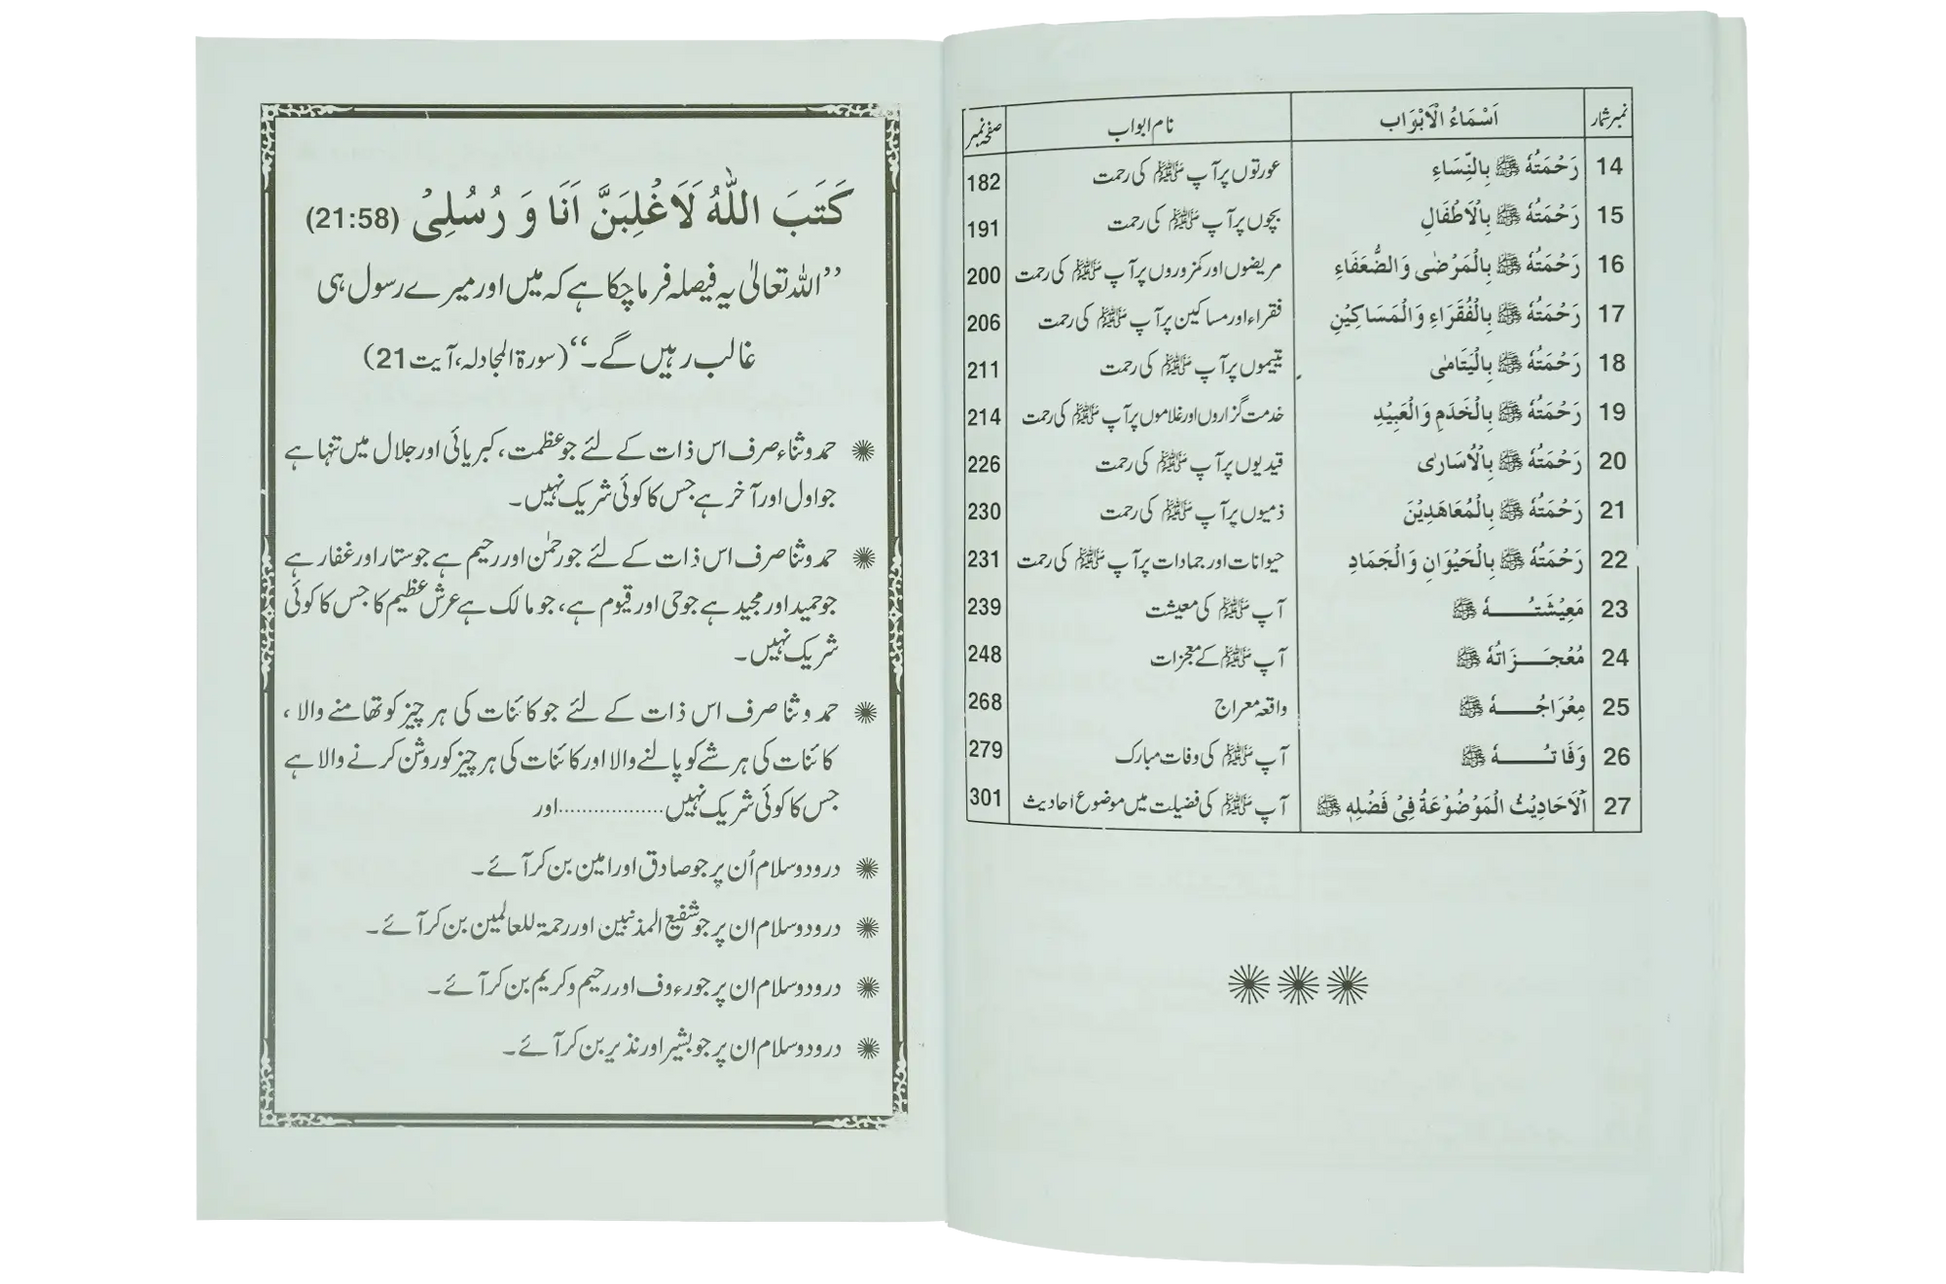 نمبر شمار اَسْمَاءُ الْاَبْوَاب نام ابواب صفحہ نمبر
14 رَحْمَتُهٗ ﷺ بِالنِّسَاءِ عورتوں پر آپ ﷺ کی رحمت 182
15 رَحْمَتُهٗ ﷺ بِالْاَطْفَالِ بچوں پر آپ ﷺ کی رحمت 191
16 رَحْمَتُهٗ ﷺ بِالْمَرْضٰى وَالضُّعَفَاءِ مریضوں اور کمزوروں پر آپ ﷺ کی رحمت 200
17 رَحْمَتُهٗ ﷺ بِالْفُقَرَاءِ وَالْمَسَاكِيْنِ فقراء اور مساکین پر آپ ﷺ کی رحمت 206
18 رَحْمَتُهٗ ﷺ بِالْيَتَامٰى یتیموں پر آپ ﷺ کی رحمت 211
19 رَحْمَتُهٗ ﷺ بِالْخَدَمِ وَالْعَبِيْدِ خدمت گزاروں اور غلاموں پر آپ ﷺ کی رحمت 214
20 رَحْمَتُهٗ ﷺ بِالْاُسَارٰى قیدیوں پر آپ ﷺ کی رحمت 226
21 رَحْمَتُهٗ ﷺ بِالْمُعَاهَدِيْنَ ذمیوں پر آپ ﷺ کی رحمت 230
22 رَحْمَتُهٗ ﷺ بِالْحَيْوَانِ وَالْجَمَادِ حیوانات اور جمادات پر آپ ﷺ کی رحمت 231
23 مَعِيْشَتُـــهٗ ﷺ آپ ﷺ کی معیشت 239
24 مُعْجِـــزَاتُهٗ ﷺ آپ ﷺ کے معجزات 248
25 مِعْرَاجُـــهٗ ﷺ واقعہ معراج 268
26 وَفَاتُـــهٗ ﷺ آپ ﷺ کی وفات مبارک 279
27 اَلْاَحَادِيْثُ الْمَوْضُوْعَةُ فِيْ فَضْلِهٖ ﷺ آپ ﷺ کی فضیلت میں موضوع احادیث 301
كَتَبَ اللّٰهُ لَاَغْلِبَنَّ اَنَا وَ رُسُلِيْ (21:58)
’’اللہ تعالیٰ یہ فیصلہ فرما چکا ہے کہ میں اور میرے رسول ہی
غالب رہیں گے۔‘‘ (سورۃ المجادلہ، آیت 21)
حمد وثناء صرف اس ذات کے لئے جو عظمت، کبریائی اور جلال میں تنہا ہے
جو اول اور آخر ہے جس کا کوئی شریک نہیں۔
حمد وثنا صرف اس ذات کے لئے جو رحمٰن اور رحیم ہے جو ستار اور غفار ہے
جو حمید اور مجید ہے جو حی اور قیوم ہے، جو مالک ہے عرش عظیم کا جس کا کوئی
شریک نہیں۔
حمد وثنا صرف اس ذات کے لئے جو کائنات کی ہر چیز کو تھامنے والا،
کائنات کی ہر شے کو پالنے والا اور کائنات کی ہر چیز کو روشن کرنے والا ہے
جس کا کوئی شریک نہیں..................اور
درود وسلام اُن پر جو صادق اور امین بن کر آئے۔
درود وسلام ان پر جو شفیع المذنبین اور رحمۃ للعالمین بن کر آئے۔
درود وسلام ان پر جو رءوف اور رحیم و کریم بن کر آئے۔
درود وسلام ان پر جو بشیر اور نذیر بن کر آئے۔